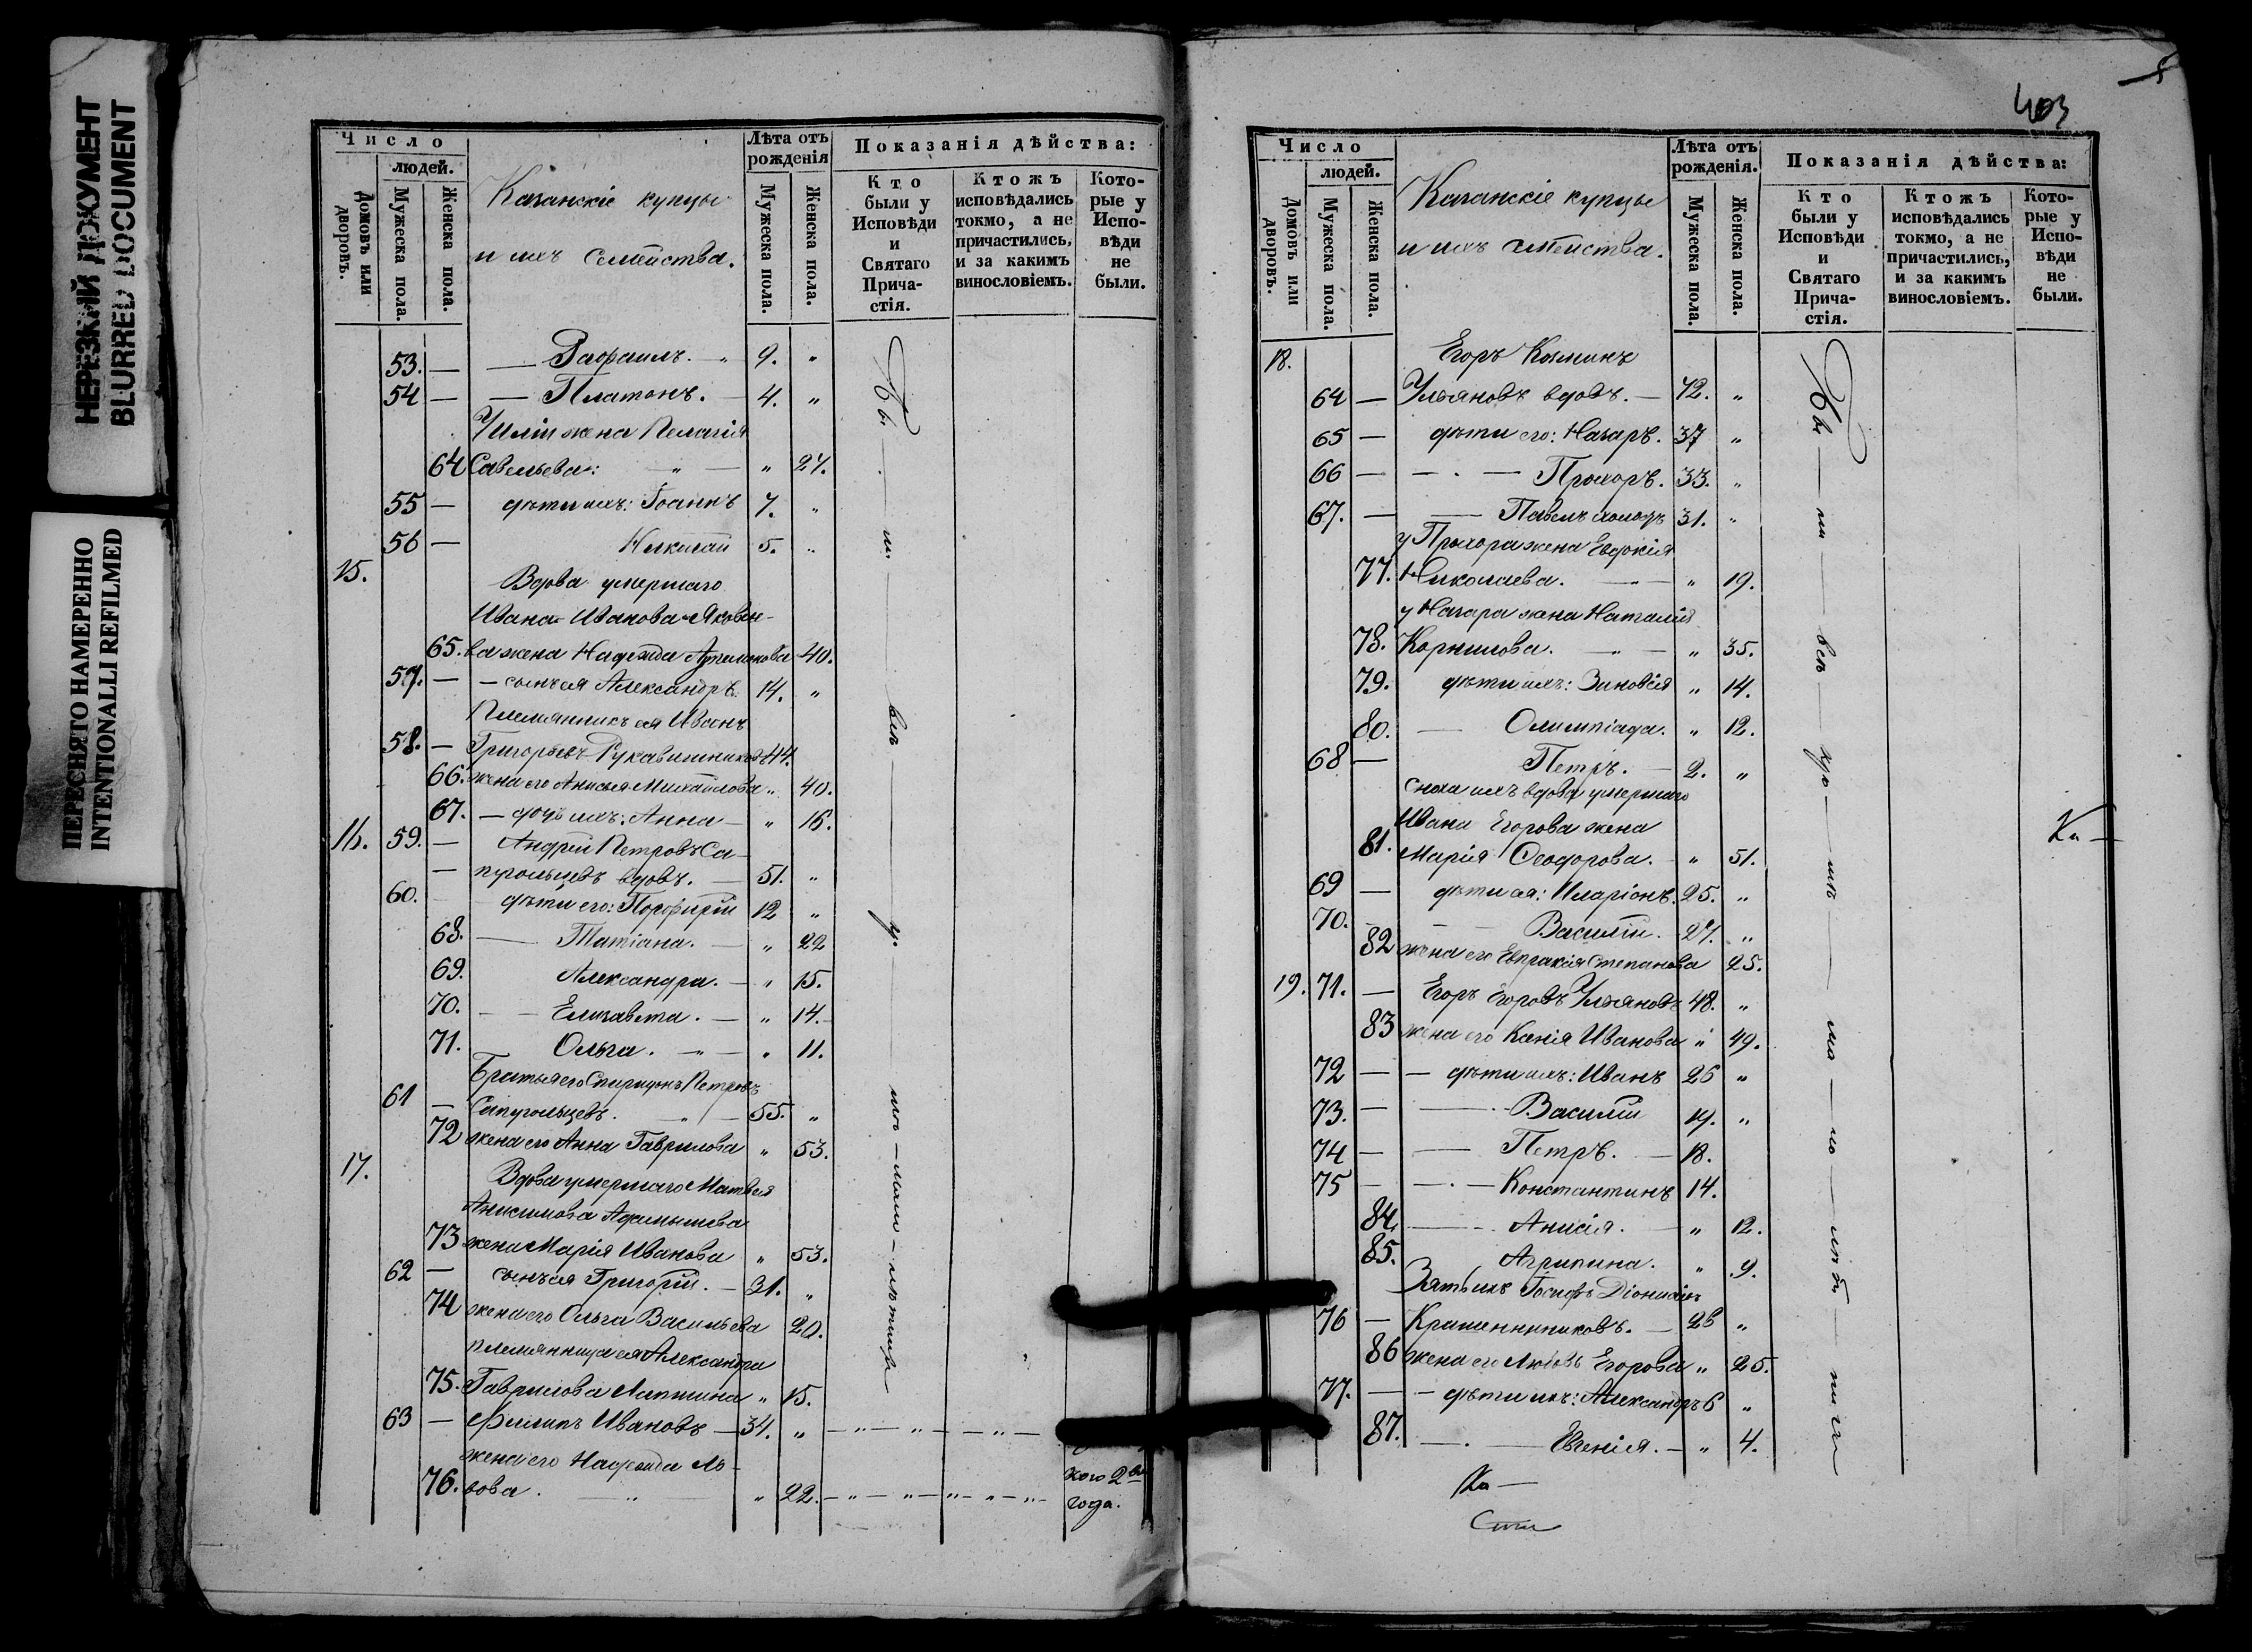 НЕРЕЗКИЙ ДОКУМЕНТ
BLURRED DOCUMENT
ПЕРЕСНЯТО НАМЕРЕННО
INTENTIONALLI REFILMED
Число
людей.
Домовъ или дворовъ.
Мужеска пола.
Женска пола.
Казанскіе купцы
и ихъ семейства.
Лѣта отъ рожденія
Мужеска пола.
Женска пола.
Показанія дѣйства:
Кто были у Исповѣди и Святаго Прича-стія.
Ктожъ исповѣдались токмо, а не причастились, и за какимъ винословіемъ.
Кото-рые у Испо-вѣди не были.
53. — Рафаилъ. — " 9. "
54 — — Платонъ. — 4. "
жена Пелагія
64 Савельева: " — " 27.
55 — дѣти ихъ: Іоаннъ 7. "
56 — Николай 5. "
15. Вдова умершаго
Ивана Иванова Яковле-
65. ва жена Надежда 40.
57. — — сынъ ея Александръ. 14. "
Племянникъ ея Иванъ
58. — Григорьевъ Рукавишниковъ 44.
66. жена его Анисья Михайлова " 40.
67. — дочь ихъ: Анна — " 16.
16. 59. — Андрей Петровъ Са-
— пугольцевъ вдовъ. — 51. "
60. дѣти его: Порфирій 12 "
68. — Татіана. — " 22
69. Александра. — " 15.
70. — — Елизавета. — " 14.
71. Ольга. — " — " 11.
Братья его Спиридонъ Петровъ
61 — Сапугольцевъ. " — 55. "
72 жена его Анна Гаврилова " 53.
17. Вдова умершаго Матвея
Анисимова
73 жена Марія Иванова " 53.
62 — сынъ ея Григорій. — 31. "
74 жена его Ольга Васильева 20.
племянница ея Александра
75. Гаврилова Лапшина " 15.
63 — Филипъ Ивановъ — 34. "
жена его Надежда Ль-
76. вова. " " 22.
кого 2го
года.
403
Число
людей.
Домовъ или дворовъ.
Мужеска пола.
Женска пола.
Казанскіе купцы
и ихъ семейства.
Лѣта отъ рожденія.
Мужеска пола.
Женска пола.
Показанія дѣйства:
Кто были у Исповѣди и Святаго Прича-стія.
Ктожъ исповѣдались токмо, а не причастились, и за какимъ винословіемъ.
Кото-рые у Испо-вѣди не были.
18. Егоръ Козминъ
64 — Ульяновъ вдовъ. — 72. "
65 — дѣти его: Назаръ. 37 "
66 — — · — Прохоръ. 33. "
67. — — Павелъ холостъ 31. "
у Прохора жена Евдокія
77. Николаева. — " — " 19.
у Назара жена Наталия
78. Корнилова. — " — " 35.
79. дѣти ихъ: Зиновія " 14.
80. — Олимпіада. " 12.
68 — Петръ. — 2. "
сноха ихъ вдова умершаго
Ивана Егорова жена
81. Марія Ѳеодорова. — " 51.
69 — дѣти ея: Иларіонъ. 25. "
70. — — Василій. 27. "
82 жена его Евпраксія Степанова 25.
19. 71. — Егоръ Егоровъ Ульяновъ 48. "
83 жена его Ксенія Иванова " 49.
72 — — дѣти ихъ: Иванъ 26 "
73. — — Василій 19. "
74 — — Петръ. — 18.
75 — — · — Константинъ 14.
84. — Анисія. — " 12.
85. Агрипина. " 9.
Зять ихъ Іосифъ Діонисіевъ
76 — Крашенниниковъ. — 26 "
86 жена его Любовь Егорова " 25.
77. — — дѣти ихъ: Александръ 6 "
87. — . — Евгенія. — " 4.